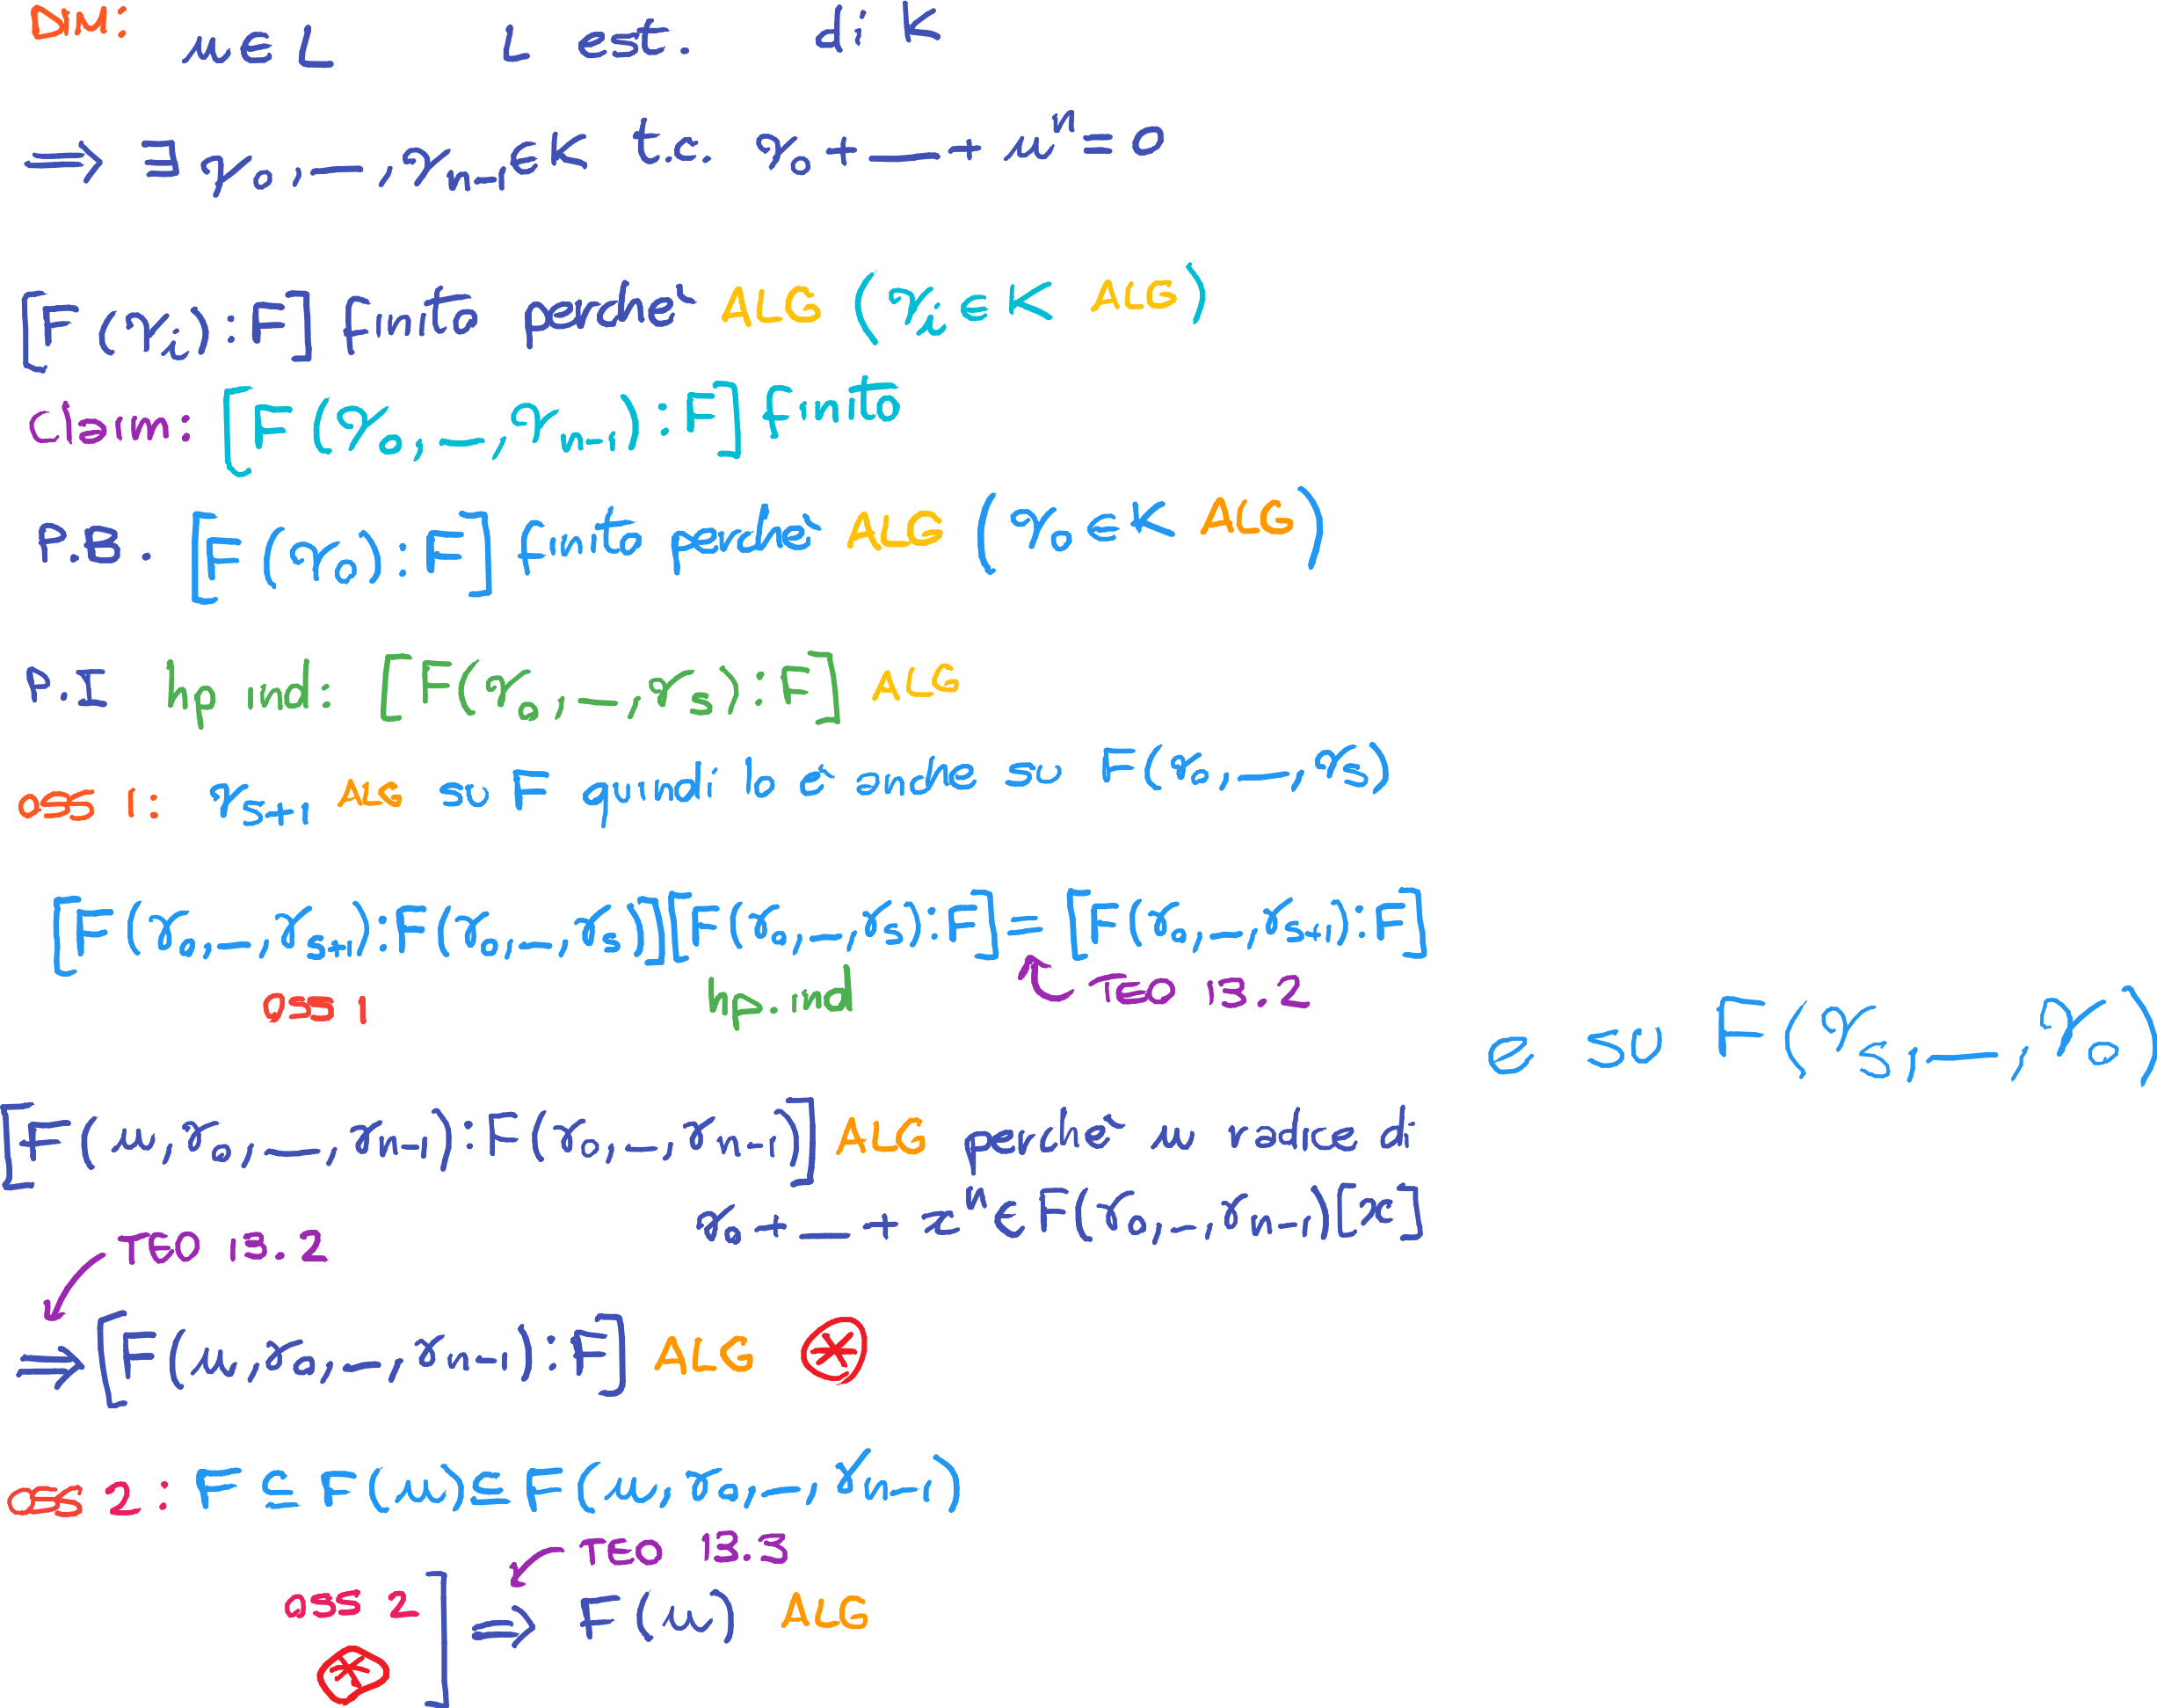 DIM: u∈L L est. di K
⟹ ∃ γ₀,—,γₙ₋₁∈K t.c. γ₀+—+uⁿ=0
[F(γᵢ):F] finito perché ALG (γᵢ∈K ALG)
Claim: [F(γ₀,—,γₙ₋₁):F] finito
P.B. [F(γ₀):F] finito perché ALG (γ₀∈K ALG)
P.I hp ind: [F(γ₀,—,γₛ):F] ALG
oss 1: γₛ₊₁ ALG su F quindi lo è anche su F(γ₀,—,γₛ)
[F(γ₀,—,γₛ₊₁):F(γ₀,—,γₛ)][F(γ₀,—,γₛ):F]=[F(γ₀,—,γₛ₊₁):F]
oss 1 hp.ind TEO 13.2
e su F(γₛ,—,γ₀)
[F(u,γ₀,—,γₙ₋₁):F(γ₀,—,γₙ₋₁)] ALG perché u radice di
γ₀+—+xⁿ∈F(γ₀,—,γₙ₋₁)[x]
TEO 13.2
⟹[F(u,γ₀,—,γₙ₋₁):F] ALG ⊛
oss 2: F⊆F(u)⊆F(u,γ₀,—,γₙ₋₁)
TEO 13.3
oss 2 ] ⟹ F(u) ALG
⊛